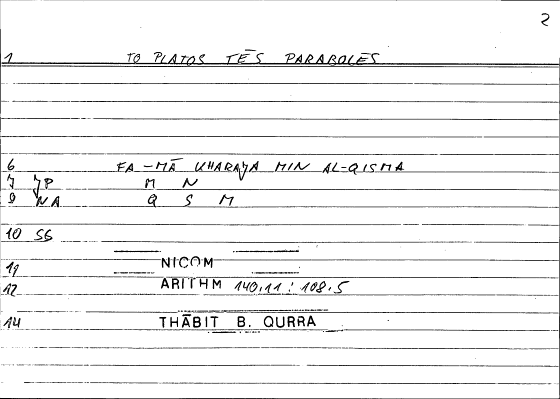 2
1 TO PLATOS TĒS PARABOLĒS
6 FA-MĀ ḪARAǦA MIN AL-QISMA
7 ǦP M N
9 NA Q S M
10 SG
11 NICOM
12 ARITHM 140.11 : 108.5
14 THĀBIT B. QURRA